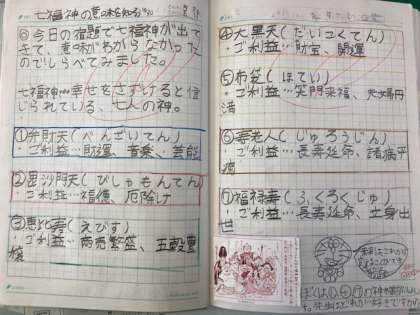 七福神の意味を知ろう
◎今日の宿題で七福神が出て
きて、意味がわからなかった
のでしらべてみました。
七福神…幸せをさずけると信
じられている、七人の神。
①弁財天(べんざいてん)
・ご利益…財運、音楽、芸能
②毘沙門天(びしゃもんてん)
・ご利益…福徳、厄除け
③恵比寿(えびす)
・ご利益…商売繁盛、五穀豊
穣
④大黒天(だいこくてん)
・ご利益…財宝、開運
⑤布袋(ほてい)
・ご利益…笑門来福、夫婦円
満
⑥寿老人(じゅろうじん)
・ご利益…長寿延命、諸病平
癒
⑦福禄寿(ふくろくじゅ)
・ご利益…長寿延命、立身出
世
ぼくは①④⑦の神